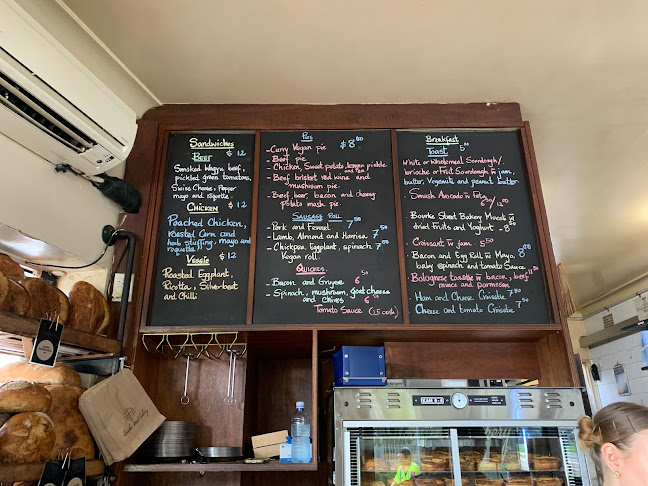 Sandwiches
Beef $12
Smoked Wagyu beef,
pickled green tomatoes,
Swiss Cheese, Pepper
mayo and roquette.
Chicken $12
Poached Chicken,
Roasted Corn and
herb stuffing, mayo and
roquette
Veggie $12
Roasted Eggplant,
Ricotta, Silverbeet
and Chilli
Pies
- Curry Vegan pie $8.50
- Beef pie
- Chicken, Sweet potato, pickle
pie
- Beef brisket red wine and
mushroom pie.
- Beef beer, bacon and cheesy
potato mash pie.
Sausage Roll
- Pork and Fennel 7.50
- Lamb, Almond and Harissa 7.50
- Chickpea, Eggplant, spinach 7.50
Vegan roll.
Quiches
- Bacon and Gruyere 6.50
- Spinach, mushroom, goat cheese
and chives 6.50
Tomato Sauce
Breakfast
Toast
White or Wholemeal Sourdough/
brioche or fruit Sourdough w jam,
butter, Vegemite and peanut butter
- Smash Avocado n Feta
Bourke Street Bakery Muesli w
dried Fruits and Yoghurt - 8.50
- Croissant w jam 5.50
- Bacon and Egg Roll w Mayo,
baby spinach and tomato Sauce
- Bolognese toastie w bacon, beef
mince and parmesan
- Ham and Cheese Croissant 7.50
Cheese and tomato Croissant 7.50